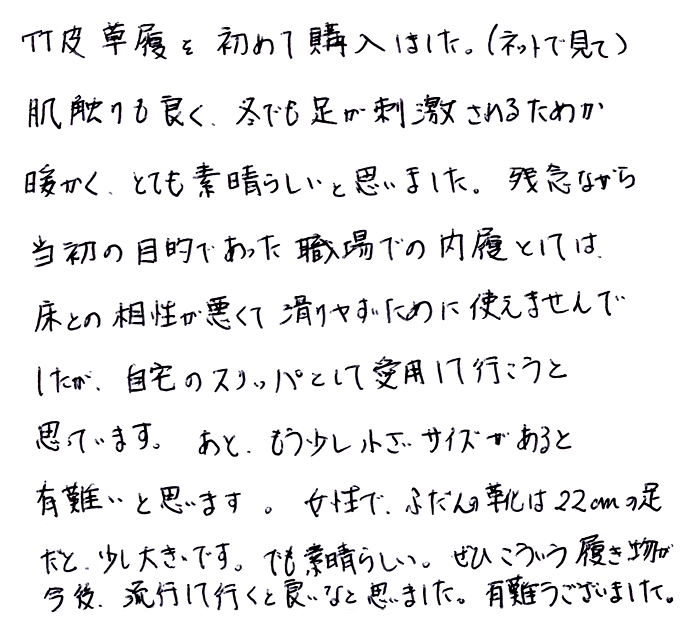 竹皮草履を初めて購入しました。(ネットで見て)
肌触りも良く、冬でも足が刺激されるためか
暖かく、とても素晴らしいと思いました。残念ながら
当初の目的であった職場での内履としては、
床との相性が悪くて滑りやすいために使えませんで
したが、自宅のスリッパとして愛用して行こうと
思っています。あと、もう少し小さいサイズがあると
有難いと思います。女性で、ふだんの革靴は22cmの足
だと、少し大きいです。でも素晴らしい。ぜひこういう履き物が
今後、流行して行くと良いなと思いました。有難うございました。